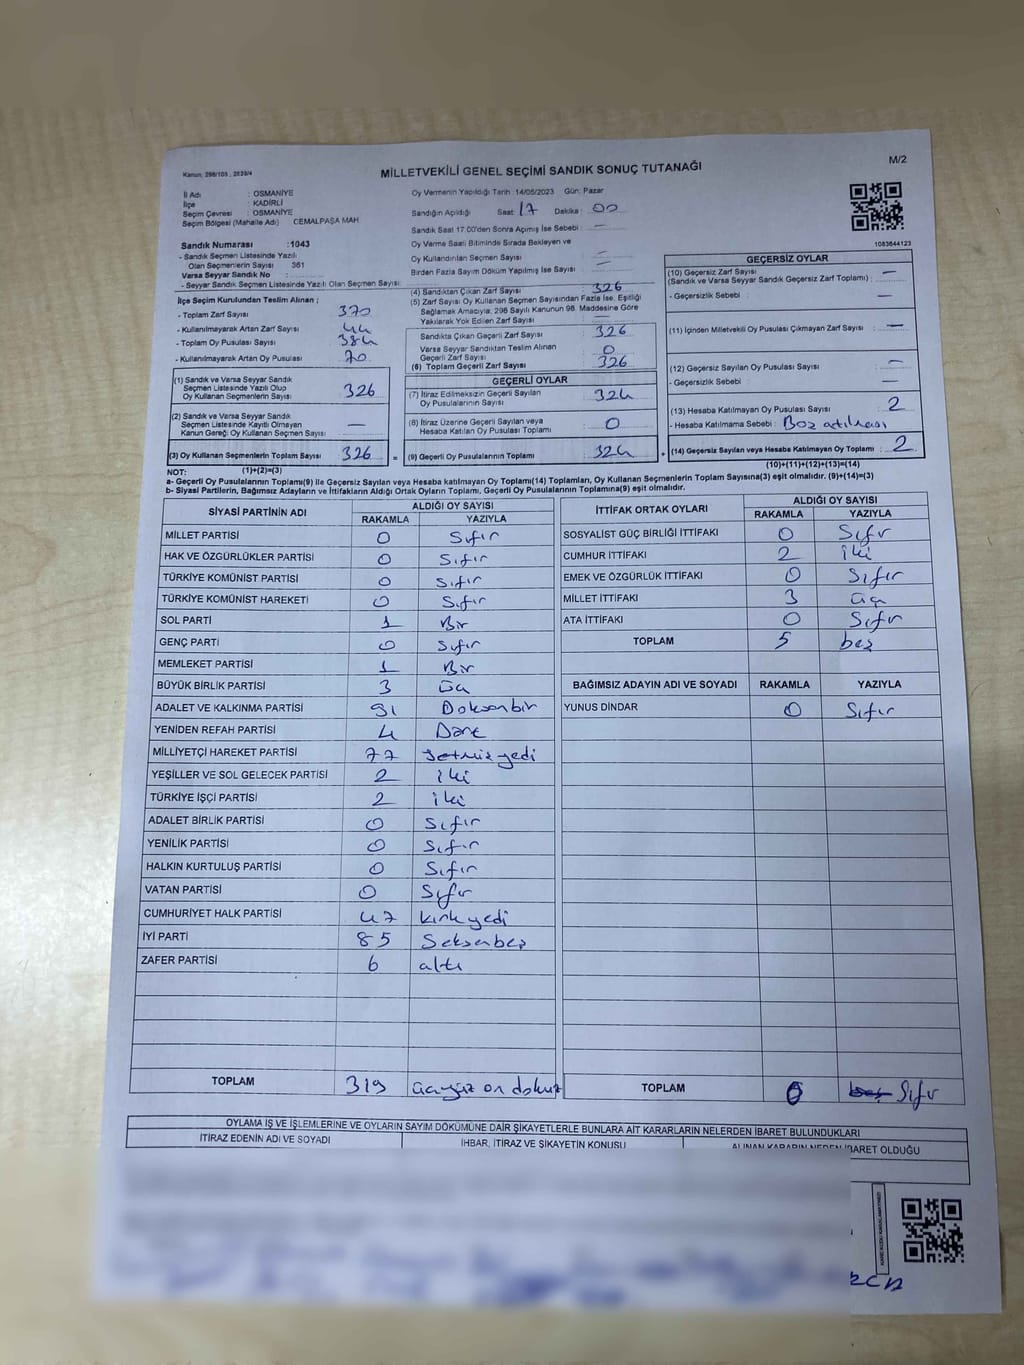 M/2
Kanun, 298/105 , 2839/4
MİLLETVEKİLİ GENEL SEÇİMİ SANDIK SONUÇ TUTANAĞI
İl Adı : OSMANİYE
İlçe : KADİRLİ
Seçim Çevresi : OSMANİYE
Seçim Bölgesi (Mahalle Adı) CEMALPAŞA MAH.
Sandık Numarası :1043
- Sandık Seçmen Listesinde Yazılı
Olan Seçmenlerin Sayısı 361
Varsa Seyyar Sandık No :
- Seyyar Sandık Seçmen Listesinde Yazılı Olan Seçmen Sayısı:
İlçe Seçim Kurulundan Teslim Alınan ;
- Toplam Zarf Sayısı : 370
- Kullanılmayarak Artan Zarf Sayısı : 44
- Toplam Oy Pusulası Sayısı : 394
- Kullanılmayarak Artan Oy Pusulası : 70
(1) Sandık ve Varsa Seyyar Sandık
Seçmen Listesinde Yazılı Olup
Oy Kullanan Seçmenlerin Sayısı : 326
(2) Sandık ve Varsa Seyyar Sandık
Seçmen Listesinde Kayıtlı Olmayan
Kanun Gereği Oy Kullanan Seçmen Sayısı : —
(3) Oy Kullanan Seçmenlerin Toplam Sayısı : 326 =
Oy Vermenin Yapıldığı Tarih :14/05/2023 Gün: Pazar
Sandığın Açıldığı Saat: 17 Dakika : 00
Sandık Saat 17.00'den Sonra Açılmış İse Sebebi : —
Oy Verme Saati Bitiminde Sırada Bekleyen ve
Oy Kullandırılan Seçmen Sayısı : —
Birden Fazla Sayım Döküm Yapılmış İse Sayısı : —
(4) Sandıktan Çıkan Zarf Sayısı : 326
(5) Zarf Sayısı Oy Kullanan Seçmen Sayısından Fazla İse, Eşitliği
Sağlamak Amacıyla, 298 Sayılı Kanunun 98. Maddesine Göre
Yakılarak Yok Edilen Zarf Sayısı : —
Sandıkta Çıkan Geçerli Zarf Sayısı : 326
Varsa Seyyar Sandıktan Teslim Alınan
Geçerli Zarf Sayısı : 0
(6) Toplam Geçerli Zarf Sayısı : 326
GEÇERLİ OYLAR
(7) İtiraz Edilmeksizin Geçerli Sayılan
Oy Pusulalarının Sayısı : 324
(8) İtiraz Üzerine Geçerli Sayılan veya
Hesaba Katılan Oy Pusulası Toplamı : 0
(9) Geçerli Oy Pusulalarının Toplamı : 324 +
1083644123
GEÇERSİZ OYLAR
(10) Geçersiz Zarf Sayısı
(Sandık ve Varsa Seyyar Sandık Geçersiz Zarf Toplamı) : —
- Geçersizlik Sebebi : —
(11) İçinden Milletvekili Oy Pusulası Çıkmayan Zarf Sayısı : —
(12) Geçersiz Sayılan Oy Pusulası Sayısı : —
- Geçersizlik Sebebi : —
(13) Hesaba Katılmayan Oy Pusulası Sayısı : 2
- Hesaba Katılmama Sebebi : Boz atılması
(14) Geçersiz Sayılan veya Hesaba Katılmayan Oy Toplamı : 2
NOT: (1)+(2)=(3) (10)+(11)+(12)+(13)=(14)
a- Geçerli Oy Pusulalarının Toplamı(9) ile Geçersiz Sayılan veya Hesaba Katılmayan Oy Toplamı(14) Toplamları, Oy Kullanan Seçmenlerin Toplam Sayısına(3) eşit olmalıdır. (9)+(14)=(3)
b- Siyasi Partilerin, Bağımsız Adayların ve İttifakların Aldığı Ortak Oyların Toplamı, Geçerli Oy Pusulalarının Toplamına(9) eşit olmalıdır.
SİYASİ PARTİNİN ADI ALDIĞI OY SAYISI
RAKAMLA YAZIYLA
MİLLET PARTİSİ 0 Sıfır
HAK VE ÖZGÜRLÜKLER PARTİSİ 0 Sıfır
TÜRKİYE KOMÜNİST PARTİSİ 0 Sıfır
TÜRKİYE KOMÜNİST HAREKETİ 0 Sıfır
SOL PARTİ 1 Bir
GENÇ PARTİ 0 Sıfır
MEMLEKET PARTİSİ 1 Bir
BÜYÜK BİRLİK PARTİSİ 3 Üç
ADALET VE KALKINMA PARTİSİ 91 Doksanbir
YENİDEN REFAH PARTİSİ 4 Dört
MİLLİYETÇİ HAREKET PARTİSİ 77 Yetmiş yedi
YEŞİLLER VE SOL GELECEK PARTİSİ 2 iki
TÜRKİYE İŞÇİ PARTİSİ 2 iki
ADALET BİRLİK PARTİSİ 0 Sıfır
YENİLİK PARTİSİ 0 Sıfır
HALKIN KURTULUŞ PARTİSİ 0 Sıfır
VATAN PARTİSİ 0 Sıfır
CUMHURİYET HALK PARTİSİ 47 kırk yedi
İYİ PARTİ 85 Seksenbeş
ZAFER PARTİSİ 6 altı
TOPLAM 319 üçyüz on dokuz
İTTİFAK ORTAK OYLARI ALDIĞI OY SAYISI
RAKAMLA YAZIYLA
SOSYALİST GÜÇ BİRLİĞİ İTTİFAKI 0 Sıfır
CUMHUR İTTİFAKI 2 iki
EMEK VE ÖZGÜRLÜK İTTİFAKI 0 Sıfır
MİLLET İTTİFAKI 3 üç
ATA İTTİFAKI 0 Sıfır
TOPLAM 5 beş
BAĞIMSIZ ADAYIN ADI VE SOYADI RAKAMLA YAZIYLA
YUNUS DİNDAR 0 Sıfır
TOPLAM 0 beş Sıfır
OYLAMA İŞ VE İŞLEMLERİNE VE OYLARIN SAYIM DÖKÜMÜNE DAİR ŞİKAYETLERLE BUNLARA AİT KARARLARIN NELERDEN İBARET BULUNDUKLARI
İTİRAZ EDENİN ADI VE SOYADI İHBAR, İTİRAZ VE ŞİKAYETİN KONUSU ALINAN KARARIN NEDEN İBARET OLDUĞU